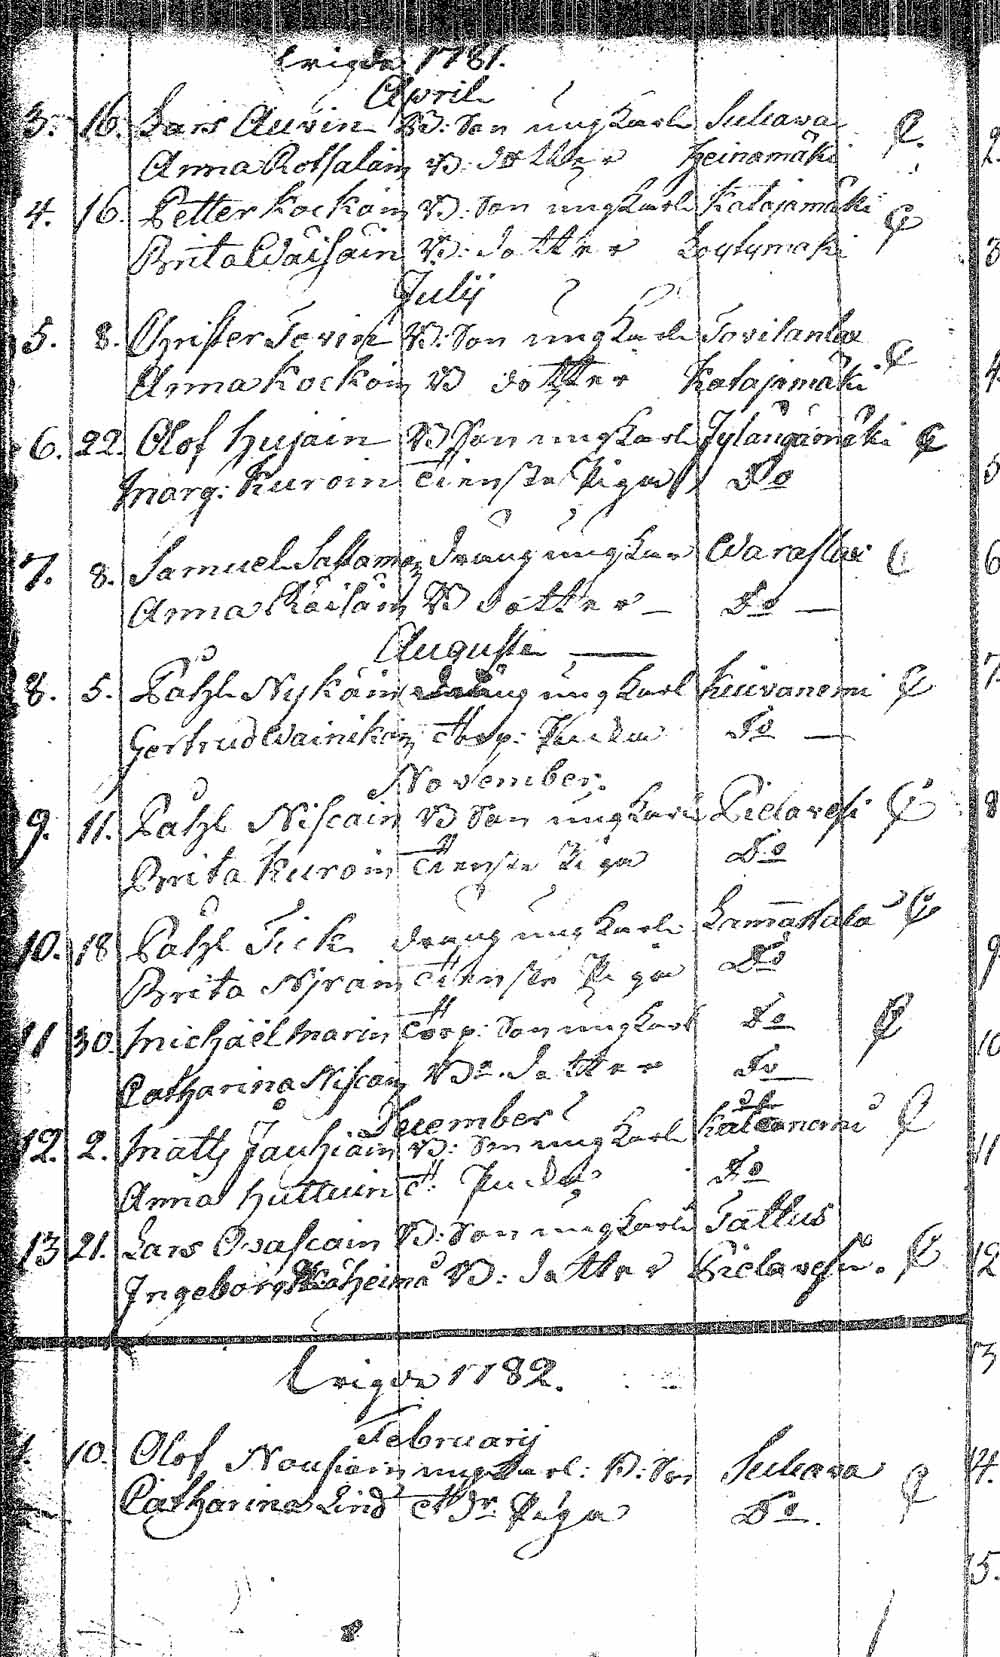 Wigde 1781.
April
3. 16. Lars Auvin B: Son ungkarl Suluava
Anna Rotsalain B: dotter Heinamäki
4. 16. Petter Kockoin B: Son ungkarl Katajamäki
Brita Wäisäin B: dotter Löytymäki
Julij
5. 8. Christer Tovin B: Son ungkarl Tovilanlax
Anna Kockoin B dotter Katajamäki
6. 22. Olof Hujain B Son ungkarl Jylängömäki
Marg: Kuroin Tienste Piga Do
7. 8. Samuel Sastamoin dräng ungkar Waraslax
Anna Räisäin B dotter Do
Augusti
8. 5. Påhl Nykäin dräng ungkarl Kuivanemi
Gertrud Wainikain Torp: Do
November.
9. 11. Påhl Niscain B Son ungkarl Pielavesi
Brita Kuroin Tienste Piga Do
10. 18 Påhl Tick dräng ungkarl Lamatsala
Brita Nyrain Tienste Piga Do
11 30. Michaël Marin Torp: Son ungkarl Do
Catharina Niscain Bn. dotter Do
December
12. 2. Matts Jauhiäin B: Son ungkarl
Anna Huttuin Do
13 21. Lars Ovascain B: Son ungkarl Tallus
Ingeborg B: dotter Pielavesi.
Wigde 1782.
Februarij
1. 10. Olof Nousiain ungkarl: B: Son Suluava
Catharina Lind Piga Do.